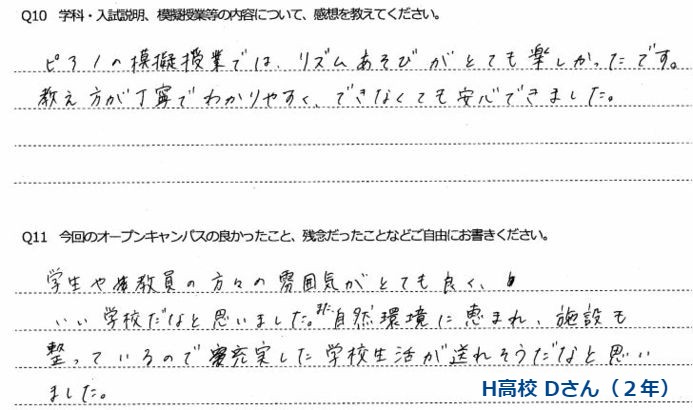 Q10 学科・入試説明、模擬授業等の内容について、感想を教えてください。
ピアノの模擬授業では、リズムあそびがとても楽しかったです。
教え方が丁寧でわかりやすく、できなくても安心できました。
Q11 今回のオープンキャンパスの良かったこと、残念だったことなどご自由にお書きください。
学生や教員の方々の雰囲気がとても良く、
いい学校だなと思いました。また自然環境に恵まれ、施設も
整っているので充実した学校生活が送れそうだなと思い
ました。
H高校 Dさん（２年）